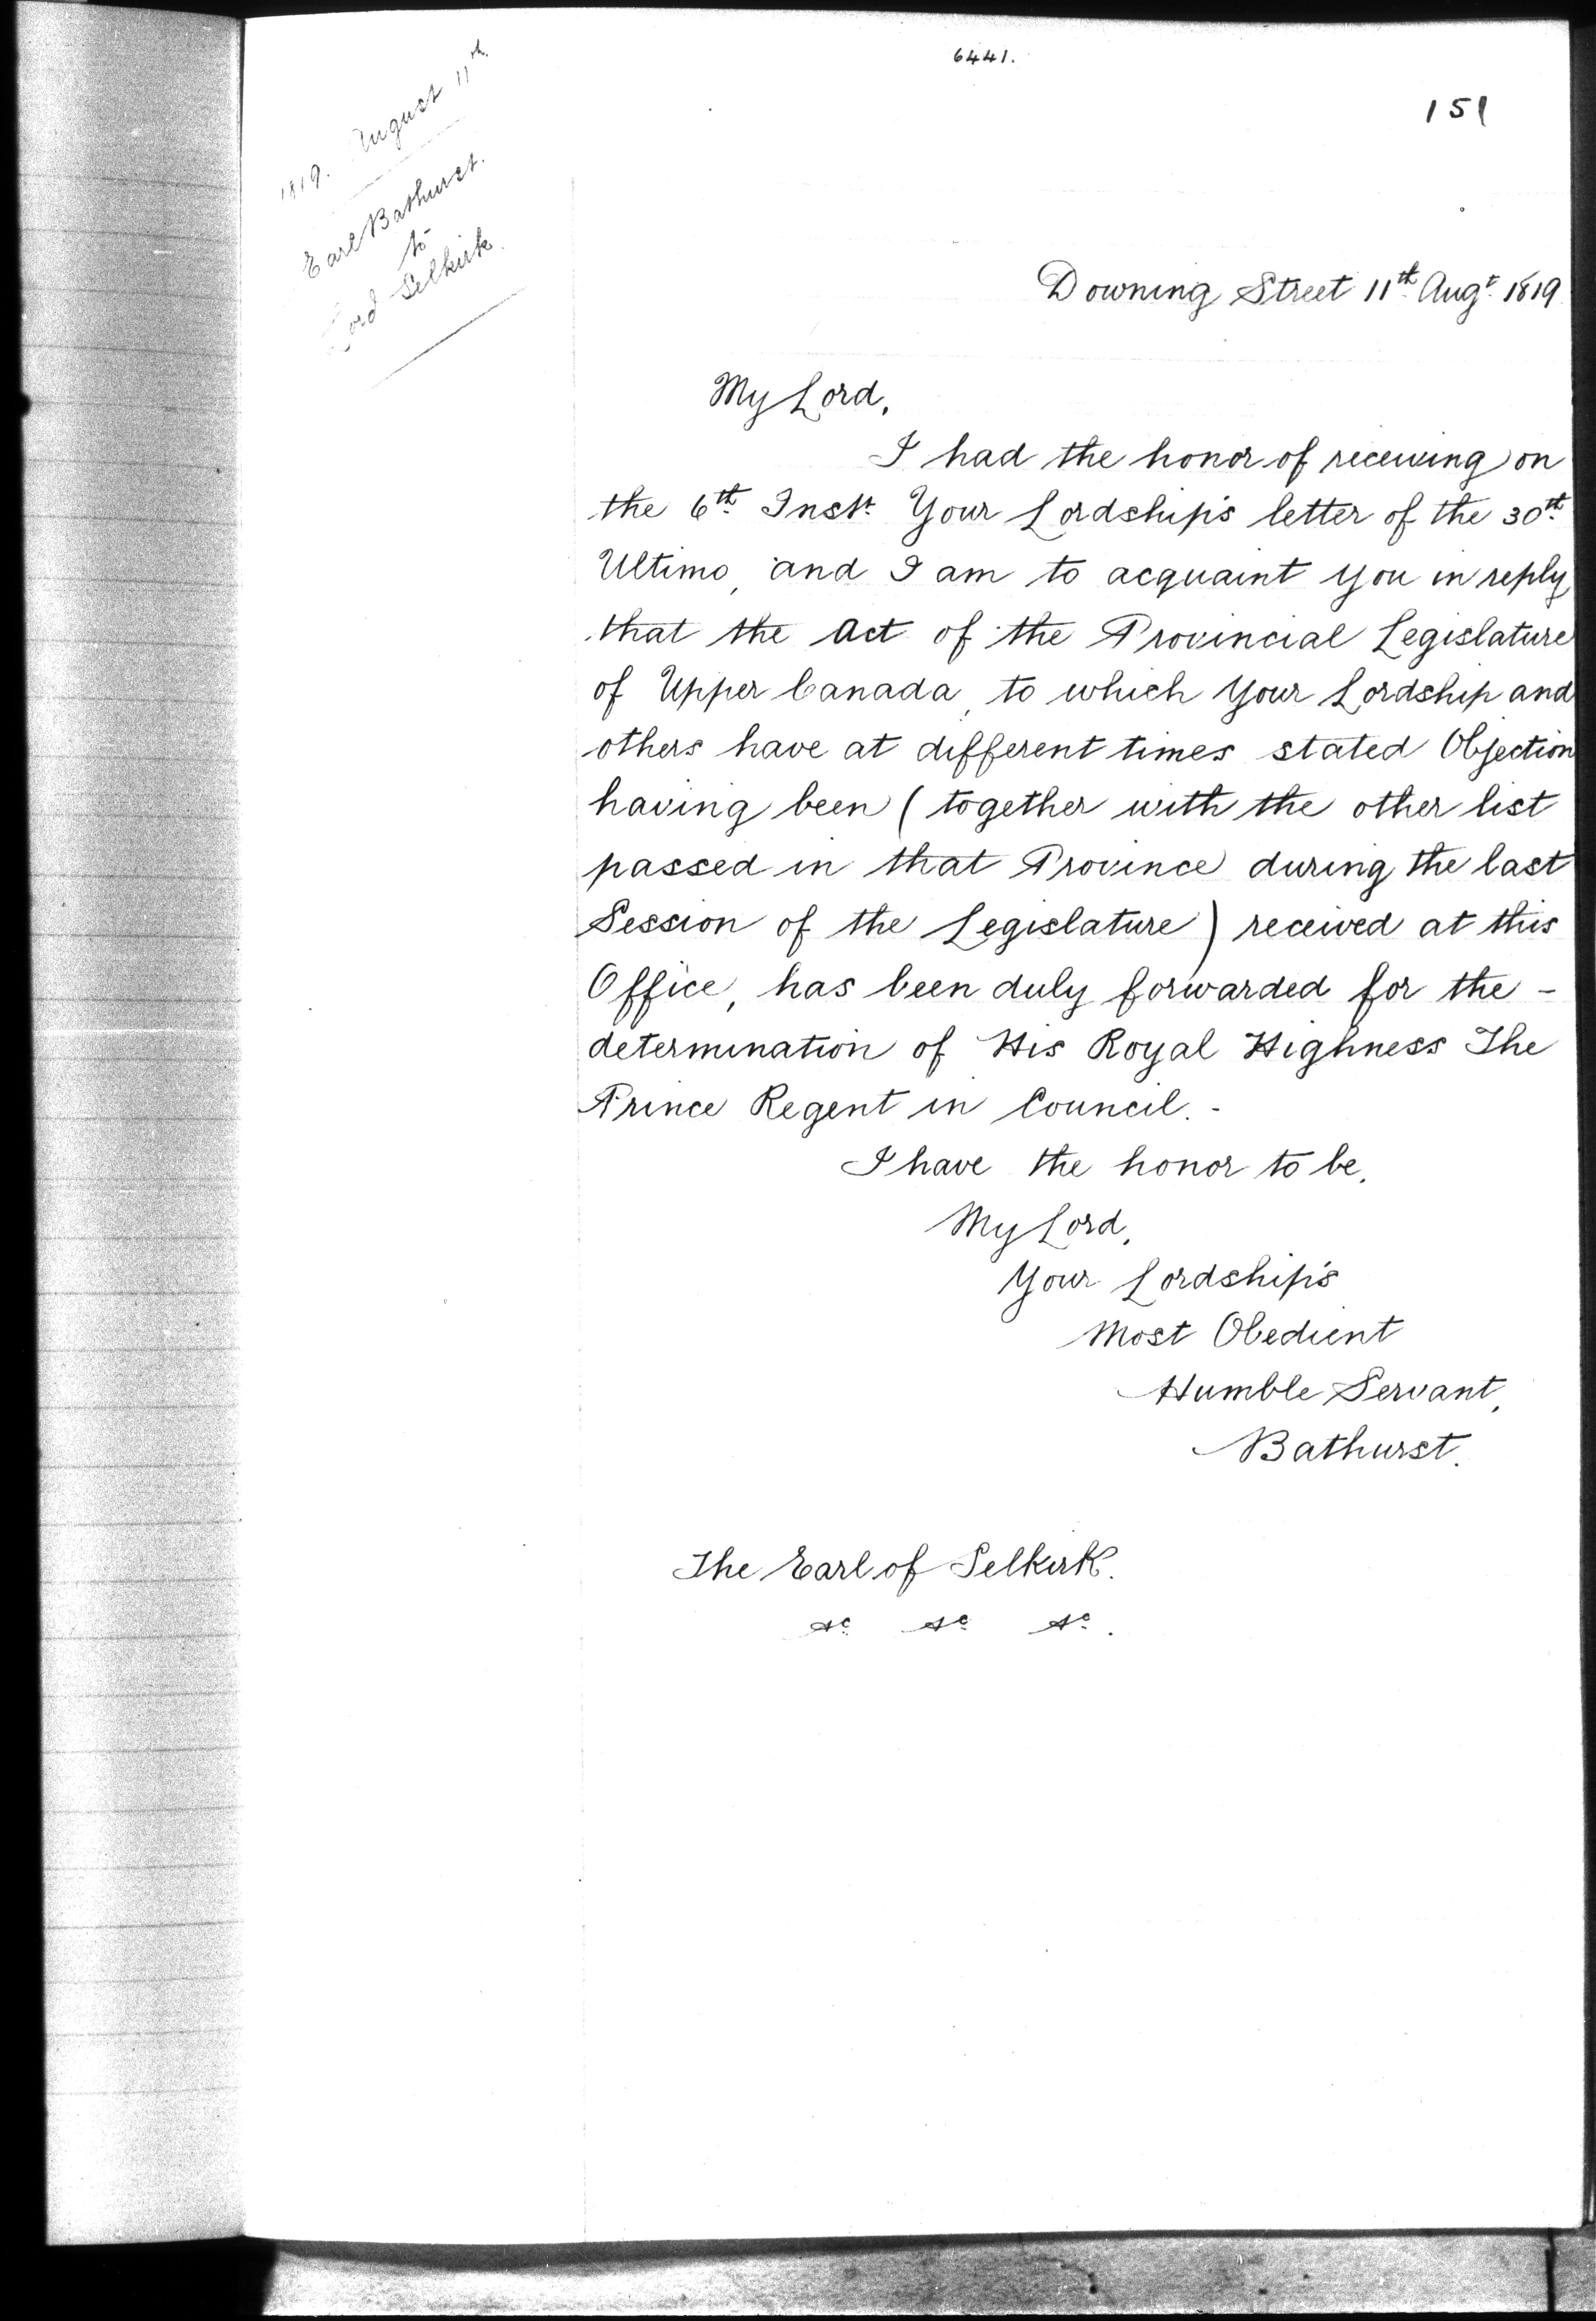 6441.
151
1819. August 11th
Earl Bathurst.
to
Lord Selkirk.
Downing Street 11th Augt 1819
My Lord,
I had the honor of receiving on
the 6th Inst. Your Lordship's letter of the 30th
Ultimo, and I am to acquaint you in reply
that the Act of the Provincial Legislature
of Upper Canada, to which Your Lordship and
others have at different times stated Objection
having been (together with the other list
passed in that Province during the last
Session of the Legislature) received at this
Office, has been duly forwarded for the -
determination of His Royal Highness The
Prince Regent in Council. -
I have the honor to be,
My Lord,
Your Lordship's
Most Obedient
Humble Servant,
Bathurst.
The Earl of Selkirk.
&c &c &c.